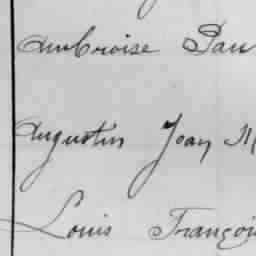 Ambroise Pau
Augustin Jean M
Louis Françoi